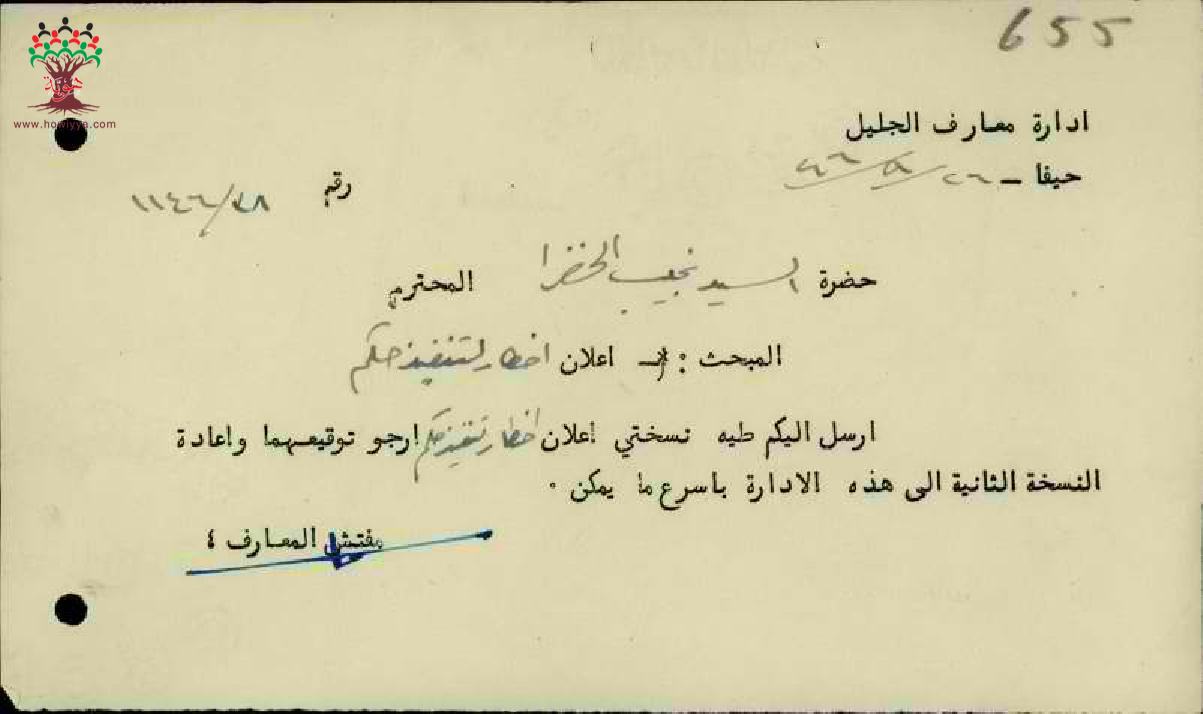 655
هوية
www.howiyya.com
ادارة معارف الجليل
حيفا ـ ٢٦/٨/٤٦
رقم ١١٤٦/٧٨
حضرة السيد نجيب الخضرا المحترم
المبحث : ـ اعلان اخطار لتنفيذ حكم
ارسل اليكم طيه نسختي اعلان اخطار تنفيذ حكم ارجو توقيعهما واعادة
النسخة الثانية الى هذه الادارة باسرع ما يمكن ٠
مفتش المعارف ٤